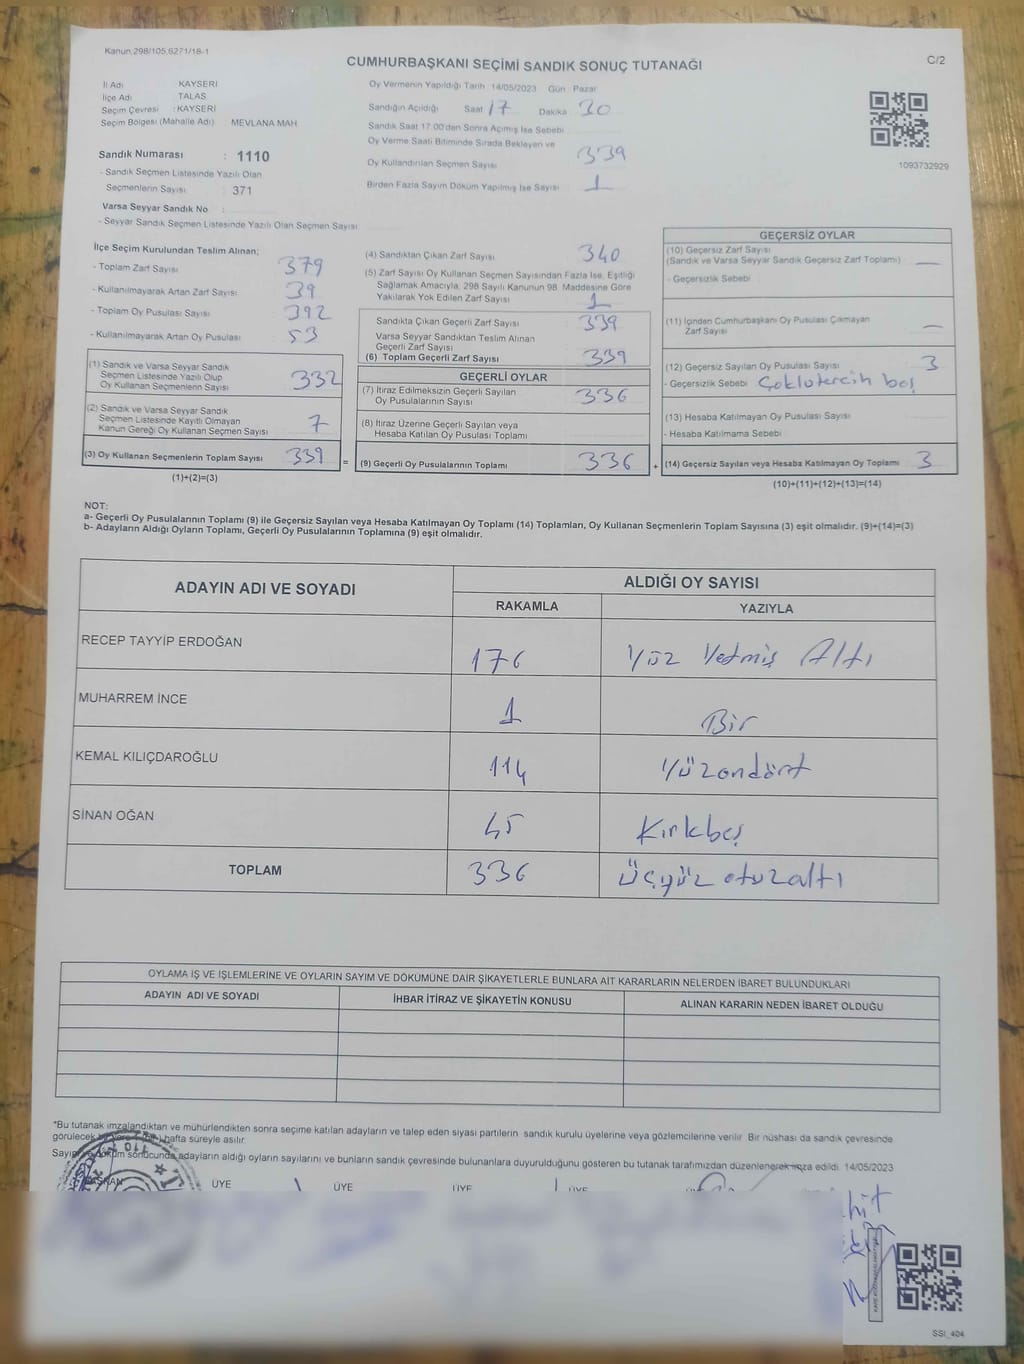 Kanun.298/105,6271/18-1
CUMHURBAŞKANI SEÇİMİ SANDIK SONUÇ TUTANAĞI
C/2
İl Adı : KAYSERİ
İlçe Adı : TALAS
Seçim Çevresi : KAYSERİ
Seçim Bölgesi (Mahalle Adı) MEVLANA MAH
Sandık Numarası : 1110
- Sandık Seçmen Listesinde Yazılı Olan
Seçmenlerin Sayısı : 371
Varsa Seyyar Sandık No :
- Seyyar Sandık Seçmen Listesinde Yazılı Olan Seçmen Sayısı
Oy Vermenin Yapıldığı Tarih 14/05/2023 Gün Pazar
Sandığın Açıldığı Saat 17 Dakika 30
Sandık Saat 17.00'den Sonra Açımış İse Sebebi
Oy Verme Saati Bitiminde Sırada Bekleyen ve
Oy Kullandırılan Seçmen Sayısı 339
Birden Fazla Sayım Döküm Yapılmış İse Sayısı 1
1093732929
İlçe Seçim Kurulundan Teslim Alınan;
- Toplam Zarf Sayısı 379
- Kullanılmayarak Artan Zarf Sayısı 39
- Toplam Oy Pusulası Sayısı 392
- Kullanılmayarak Artan Oy Pusulası 53
(1) Sandık ve Varsa Seyyar Sandık
Seçmen Listesinde Yazılı Olup
Oy Kullanan Seçmenlerin Sayısı 332
(2) Sandık ve Varsa Seyyar Sandık
Seçmen Listesinde Kayıtlı Olmayan
Kanun Gereği Oy Kullanan Seçmen Sayısı 7
(3) Oy Kullanan Seçmenlerin Toplam Sayısı 339 =
(1)+(2)=(3)
(4) Sandıktan Çıkan Zarf Sayısı 340
(5) Zarf Sayısı Oy Kullanan Seçmen Sayısından Fazla İse, Eşitliği
Sağlamak Amacıyla, 298 Sayılı Kanunun 98. Maddesine Göre
Yakılarak Yok Edilen Zarf Sayısı 1
Sandıkta Çıkan Geçerli Zarf Sayısı 339
Varsa Seyyar Sandıktan Teslim Alınan
Geçerli Zarf Sayısı
(6) Toplam Geçerli Zarf Sayısı 339
GEÇERLİ OYLAR
(7) İtiraz Edilmeksizin Geçerli Sayılan
Oy Pusulalarının Sayısı 336
(8) İtiraz Üzerine Geçerli Sayılan veya
Hesaba Katılan Oy Pusulası Toplamı
(9) Geçerli Oy Pusulalarının Toplamı 336 +
GEÇERSİZ OYLAR
(10) Geçersiz Zarf Sayısı
(Sandık ve Varsa Seyyar Sandık Geçersiz Zarf Toplamı) —
- Geçersizlik Sebebi
(11) İçinden Cumhurbaşkanı Oy Pusulası Çıkmayan
Zarf Sayısı —
(12) Geçersiz Sayılan Oy Pusulası Sayısı 3
- Geçersizlik Sebebi Çoklutercih boş
(13) Hesaba Katılmayan Oy Pusulası Sayısı
- Hesaba Katılmama Sebebi
(14) Geçersiz Sayılan veya Hesaba Katılmayan Oy Toplamı 3
(10)+(11)+(12)+(13)=(14)
NOT:
a- Geçerli Oy Pusulalarının Toplamı (9) ile Geçersiz Sayılan veya Hesaba Katılmayan Oy Toplamı (14) Toplamları, Oy Kullanan Seçmenlerin Toplam Sayısına (3) eşit olmalıdır. (9)+(14)=(3)
b- Adayların Aldığı Oyların Toplamı, Geçerli Oy Pusulalarının Toplamına (9) eşit olmalıdır.
ADAYIN ADI VE SOYADI
ALDIĞI OY SAYISI
RAKAMLA YAZIYLA
RECEP TAYYİP ERDOĞAN 176 Yüz Yetmiş Altı
MUHARREM İNCE 1 Bir
KEMAL KILIÇDAROĞLU 114 Yüzondört
SİNAN OĞAN 45 Kırkbeş
TOPLAM 336 Üçyüz otuzaltı
OYLAMA İŞ VE İŞLEMLERİNE VE OYLARIN SAYIM VE DÖKÜMÜNE DAİR ŞİKAYETLERLE BUNLARA AİT KARARLARIN NELERDEN İBARET BULUNDUKLARI
ADAYIN ADI VE SOYADI İHBAR İTİRAZ VE ŞİKAYETİN KONUSU ALINAN KARARIN NEDEN İBARET OLDUĞU
*Bu tutanak imzalandıktan ve mühürlendikten sonra seçime katılan adayların ve talep eden siyasi partilerin sandık kurulu üyelerine veya gözlemcilerine verilir. Bir nüshası da sandık çevresinde
görülecek hafta süreyle asılır.
döküm sonucunda adayların aldığı oyların sayılarını ve bunların sandık çevresinde bulunanlara duyurulduğunu gösteren bu tutanak tarafımızdan düzenlenerek imza edildi. 14/05/2023
BAŞKAN ÜYE ÜYE ÜYE ÜYE
SSI_404